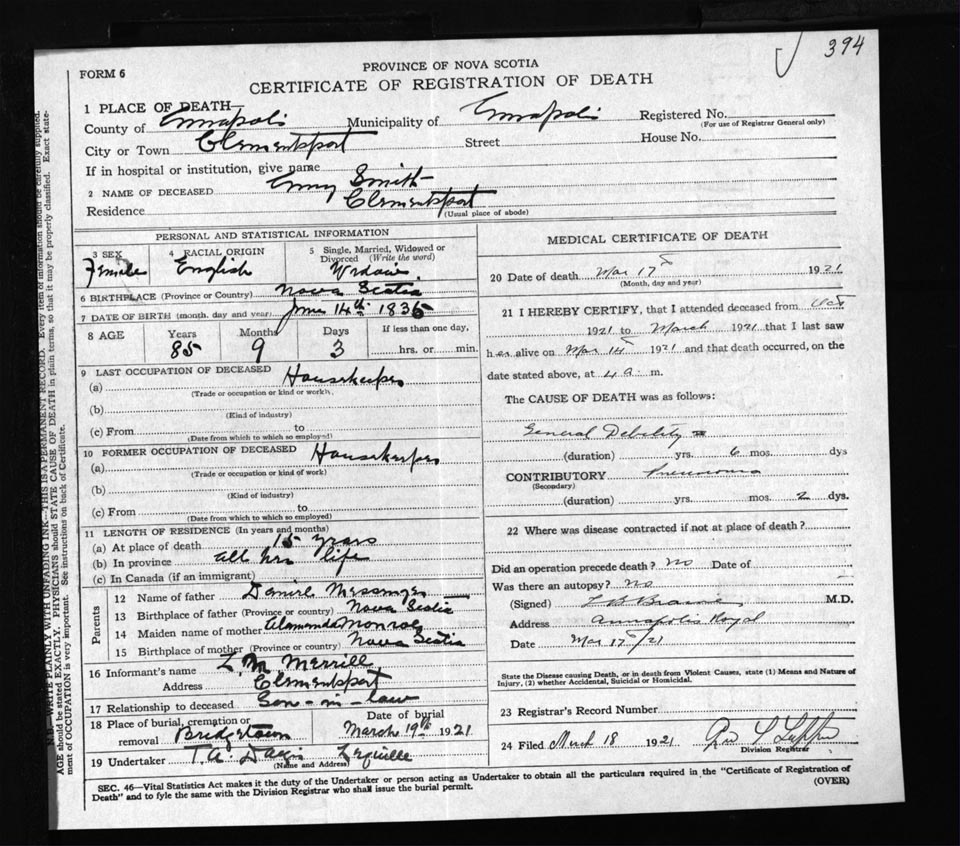 394
PROVINCE OF NOVA SCOTIA
FORM 6
CERTIFICATE OF REGISTRATION OF DEATH
1 PLACE OF DEATH—
County of Annapolis Municipality of Annapolis Registered No.
(For use of Registrar General only)
City or Town Clementsport Street House No.
If in hospital or institution, give name
2 NAME OF DECEASED Smith
Residence Clementsport
(Usual place of abode)
PERSONAL AND STATISTICAL INFORMATION
3 SEX Female
4 RACIAL ORIGIN English
5 Single, Married, Widowed or Divorced (Write the word)
6 BIRTHPLACE (Province or Country) Nova Scotia
7 DATE OF BIRTH (month, day and year) June 14th 1835
8 AGE Years 85 Months 9 Days 3 If less than one day, hrs. or min.
9 LAST OCCUPATION OF DECEASED Housekeeper
(a)
(Trade or occupation or kind or work)
(b)
(Kind of industry)
(c) From to
(Date from which to which so employed)
10 FORMER OCCUPATION OF DECEASED Housekeeper
(a)
(Trade or occupation or kind of work)
(b)
(Kind of industry)
(c) From to
(Date from which to which so employed)
11 LENGTH OF RESIDENCE (In years and months)
(a) At place of death 15 years
(b) In province all her life
(c) In Canada (if an immigrant)
Parents
12 Name of father Daniel Messenger
13 Birthplace of father (Province or country) Nova Scotia
14 Maiden name of mother Monroe
15 Birthplace of mother (Province or country) Nova Scotia
16 Informant's name L M Merrill
Address Clementsport
17 Relationship to deceased Son-in-law
18 Place of burial, cremation or removal Bridgetown
Date of burial March 19th 1921
19 Undertaker T. A.
(Name and Address)
MEDICAL CERTIFICATE OF DEATH
20 Date of death Mar 17 1921
(Month, day and year)
21 I HEREBY CERTIFY, that I attended deceased from
1921 to March 1921 that I last saw
her alive on Mar 14 1921 and that death occurred, on the
date stated above, at 4 a. m.
The CAUSE OF DEATH was as follows:
General Debility
(duration) yrs. 6 mos. dys
CONTRIBUTORY Pneumonia
(Secondary)
(duration) yrs. mos. 2 dys.
22 Where was disease contracted if not at place of death?
Did an operation precede death? no Date of
Was there an autopsy? no
(Signed) M.D.
Address Annapolis Royal
Date Mar 17/21
State the Disease causing Death, or in death from Violent Causes, state (1) Means and Nature of
Injury, (2) whether Accidental, Suicidal or Homicidal.
23 Registrar's Record Number
24 Filed March 18 1921
Division Registrar
SEC. 46—Vital Statistics Act makes it the duty of the Undertaker or person acting as Undertaker to obtain all the particulars required in the "Certificate of Registration of
Death" and to fyle the same with the Division Registrar who shall issue the burial permit. (OVER)
N.B.—WRITE PLAINLY WITH UNFADING INK—THIS IS A PERMANENT RECORD. Every item of information should be carefully supplied.
AGE should be stated EXACTLY. PHYSICIANS should STATE CAUSE OF DEATH in plain terms, so that it may be properly classified. Exact state-
ment of OCCUPATION is very important. See instructions on back of Certificate.